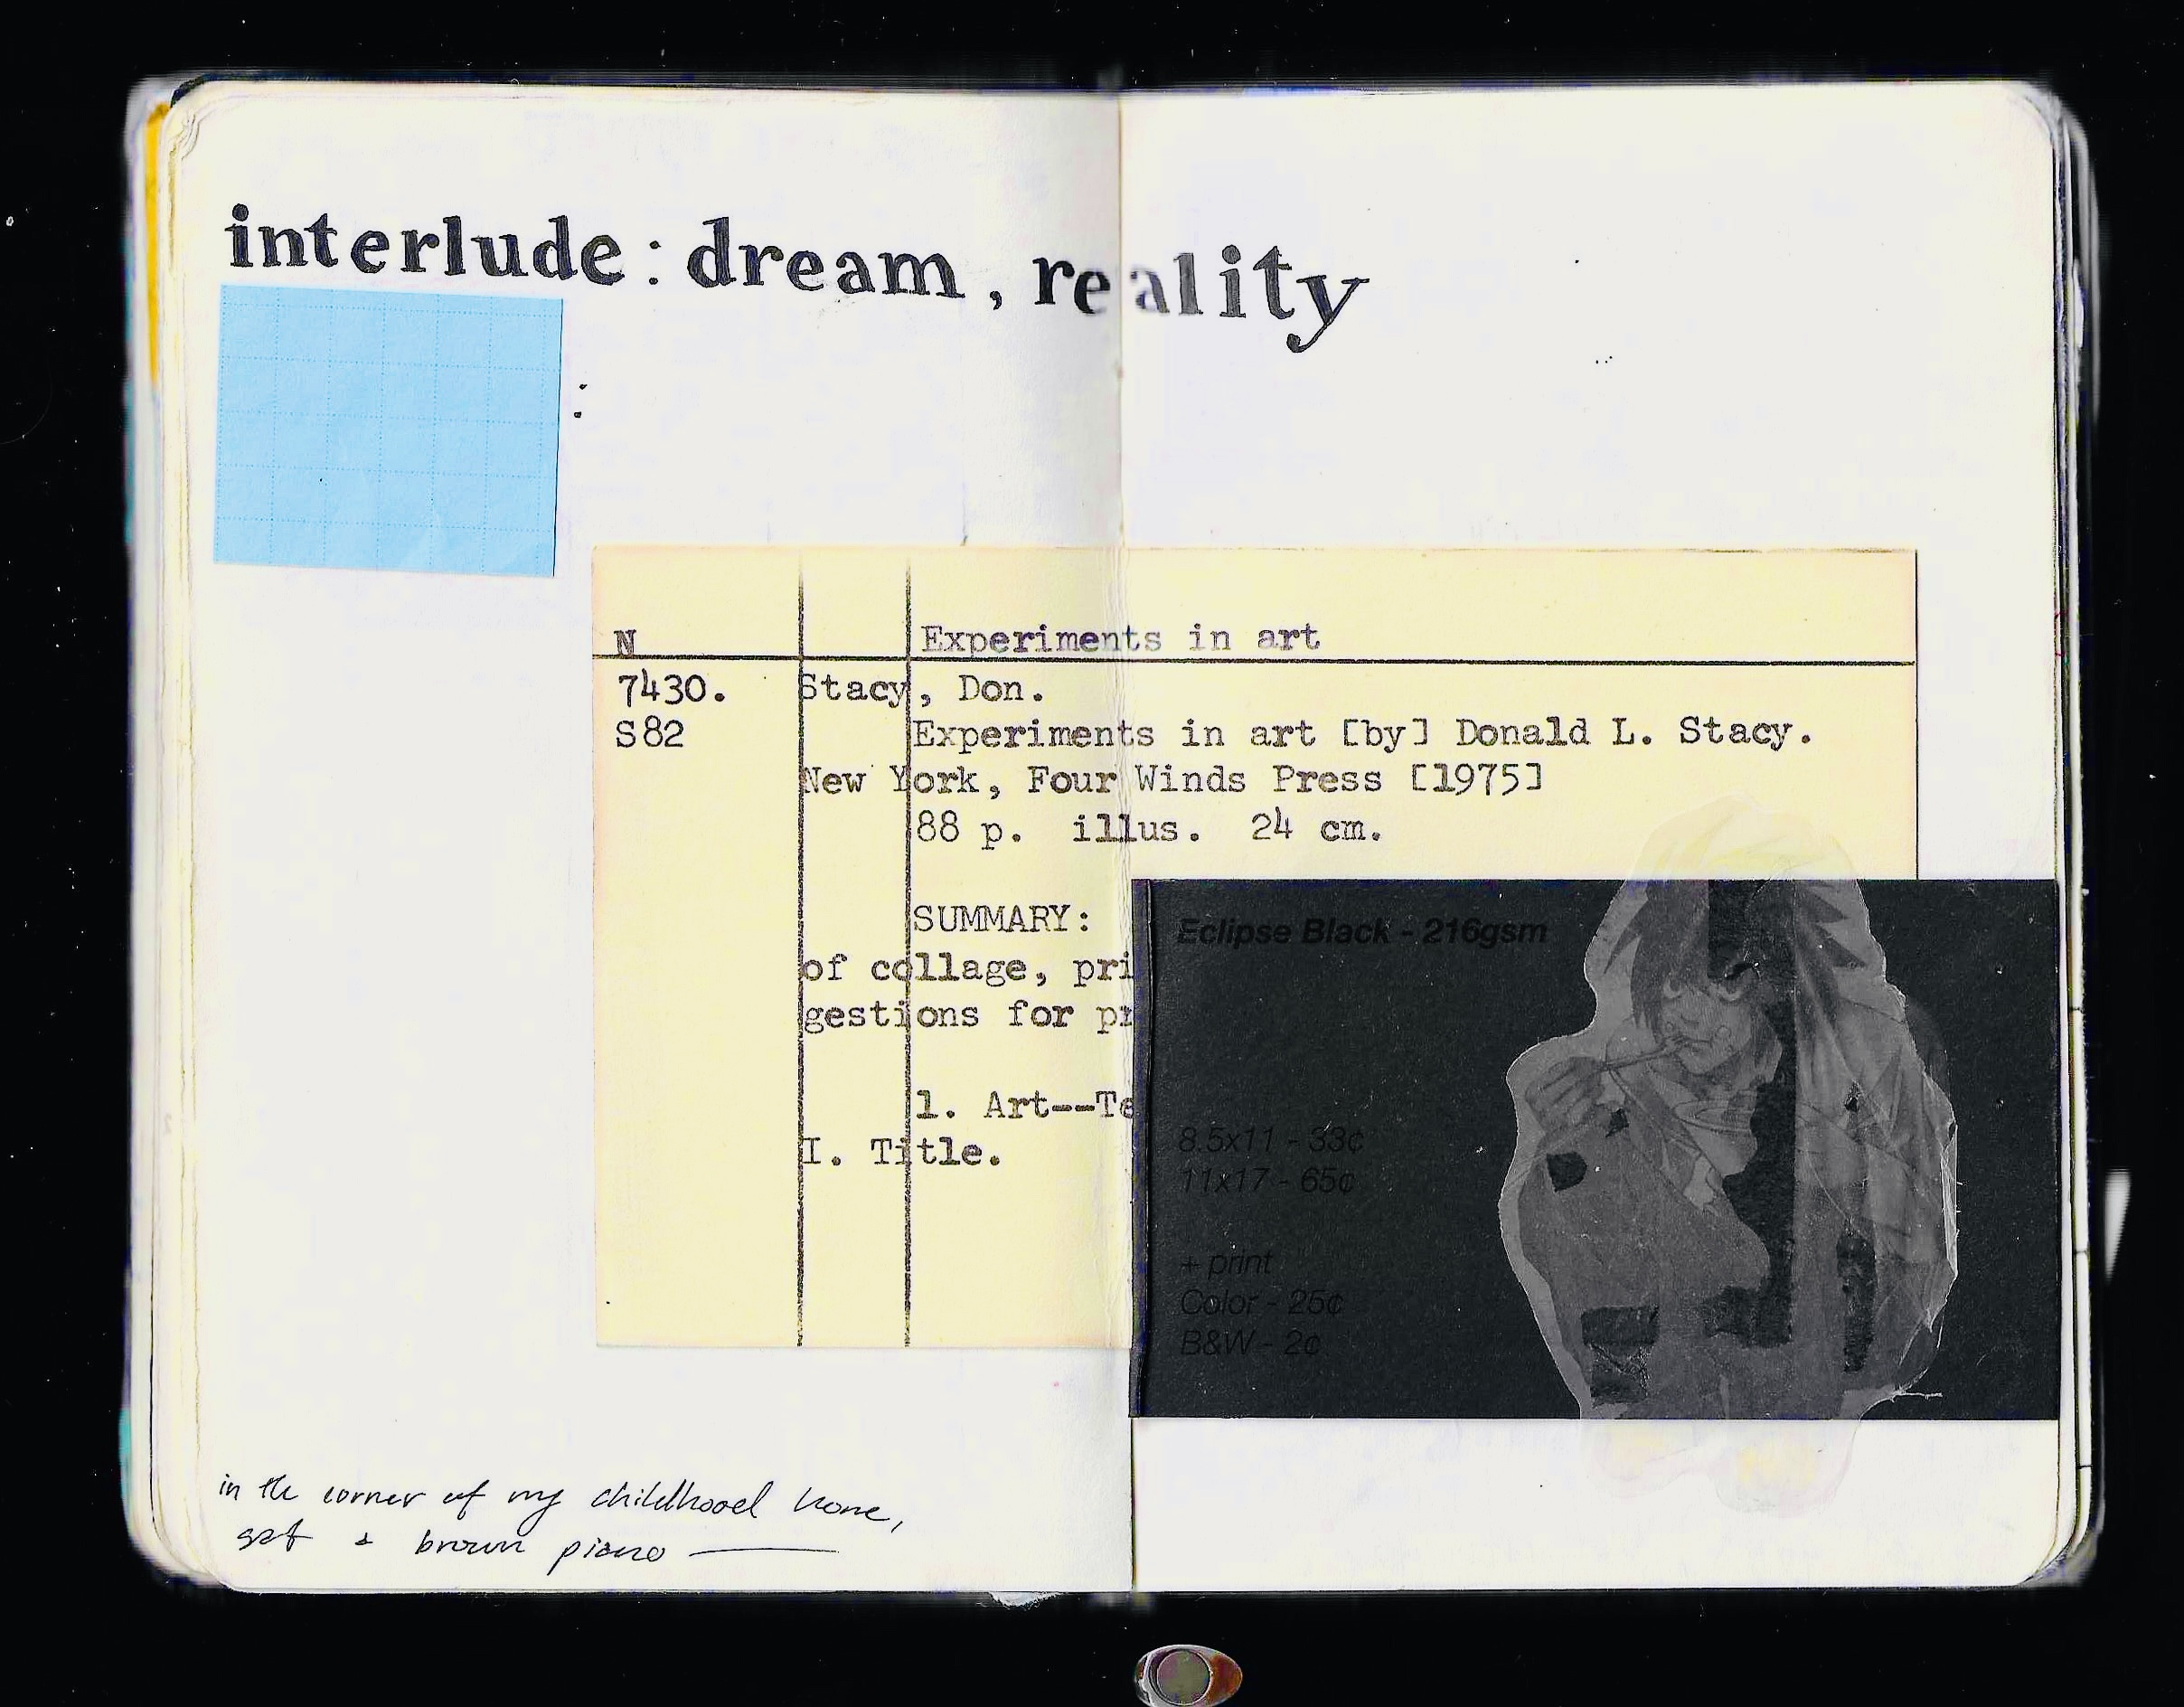 interlude: dream, reality
N Experiments in art
7430. Stacy, Don.
S82 Experiments in art [by] Donald L. Stacy.
New York, Four Winds Press [1975]
88 p. illus. 24 cm.
SUMMARY:
of collage, pri
gestions for pr
1. Art--Te
I. Title.
Eclipse Black - 216gsm
8.5x11 - 33¢
11x17 - 65¢
+ print
Color - 25¢
B&W - 2¢
in the corner of my childhood home,
sat a brown piano —